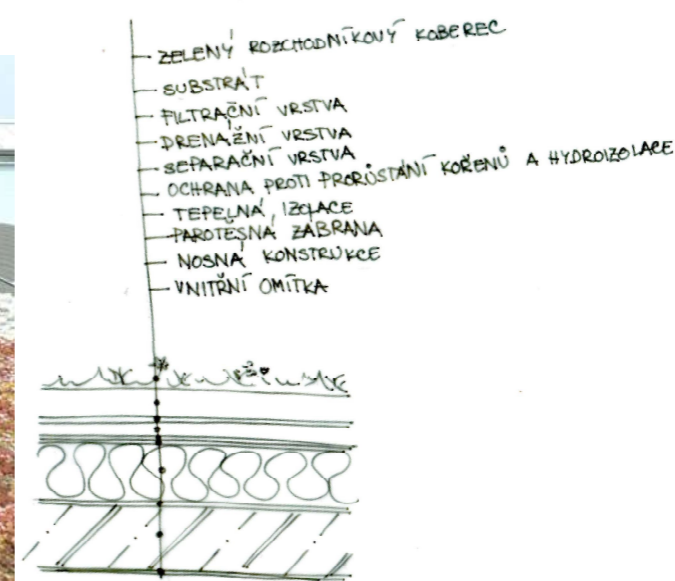 ZELENÝ ROZCHODNÍKOVÝ KOBEREC
SUBSTRÁT
FILTRAČNÍ VRSTVA
DRENÁŽNÍ VRSTVA
SEPARAČNÍ VRSTVA
OCHRANA PROTI PRORŮSTÁNÍ KOŘENŮ A HYDROIZOLACE
TEPELNÁ IZOLACE
PAROTĚSNÁ ZÁBRANA
NOSNÁ KONSTRUKCE
VNITŘNÍ OMÍTKA